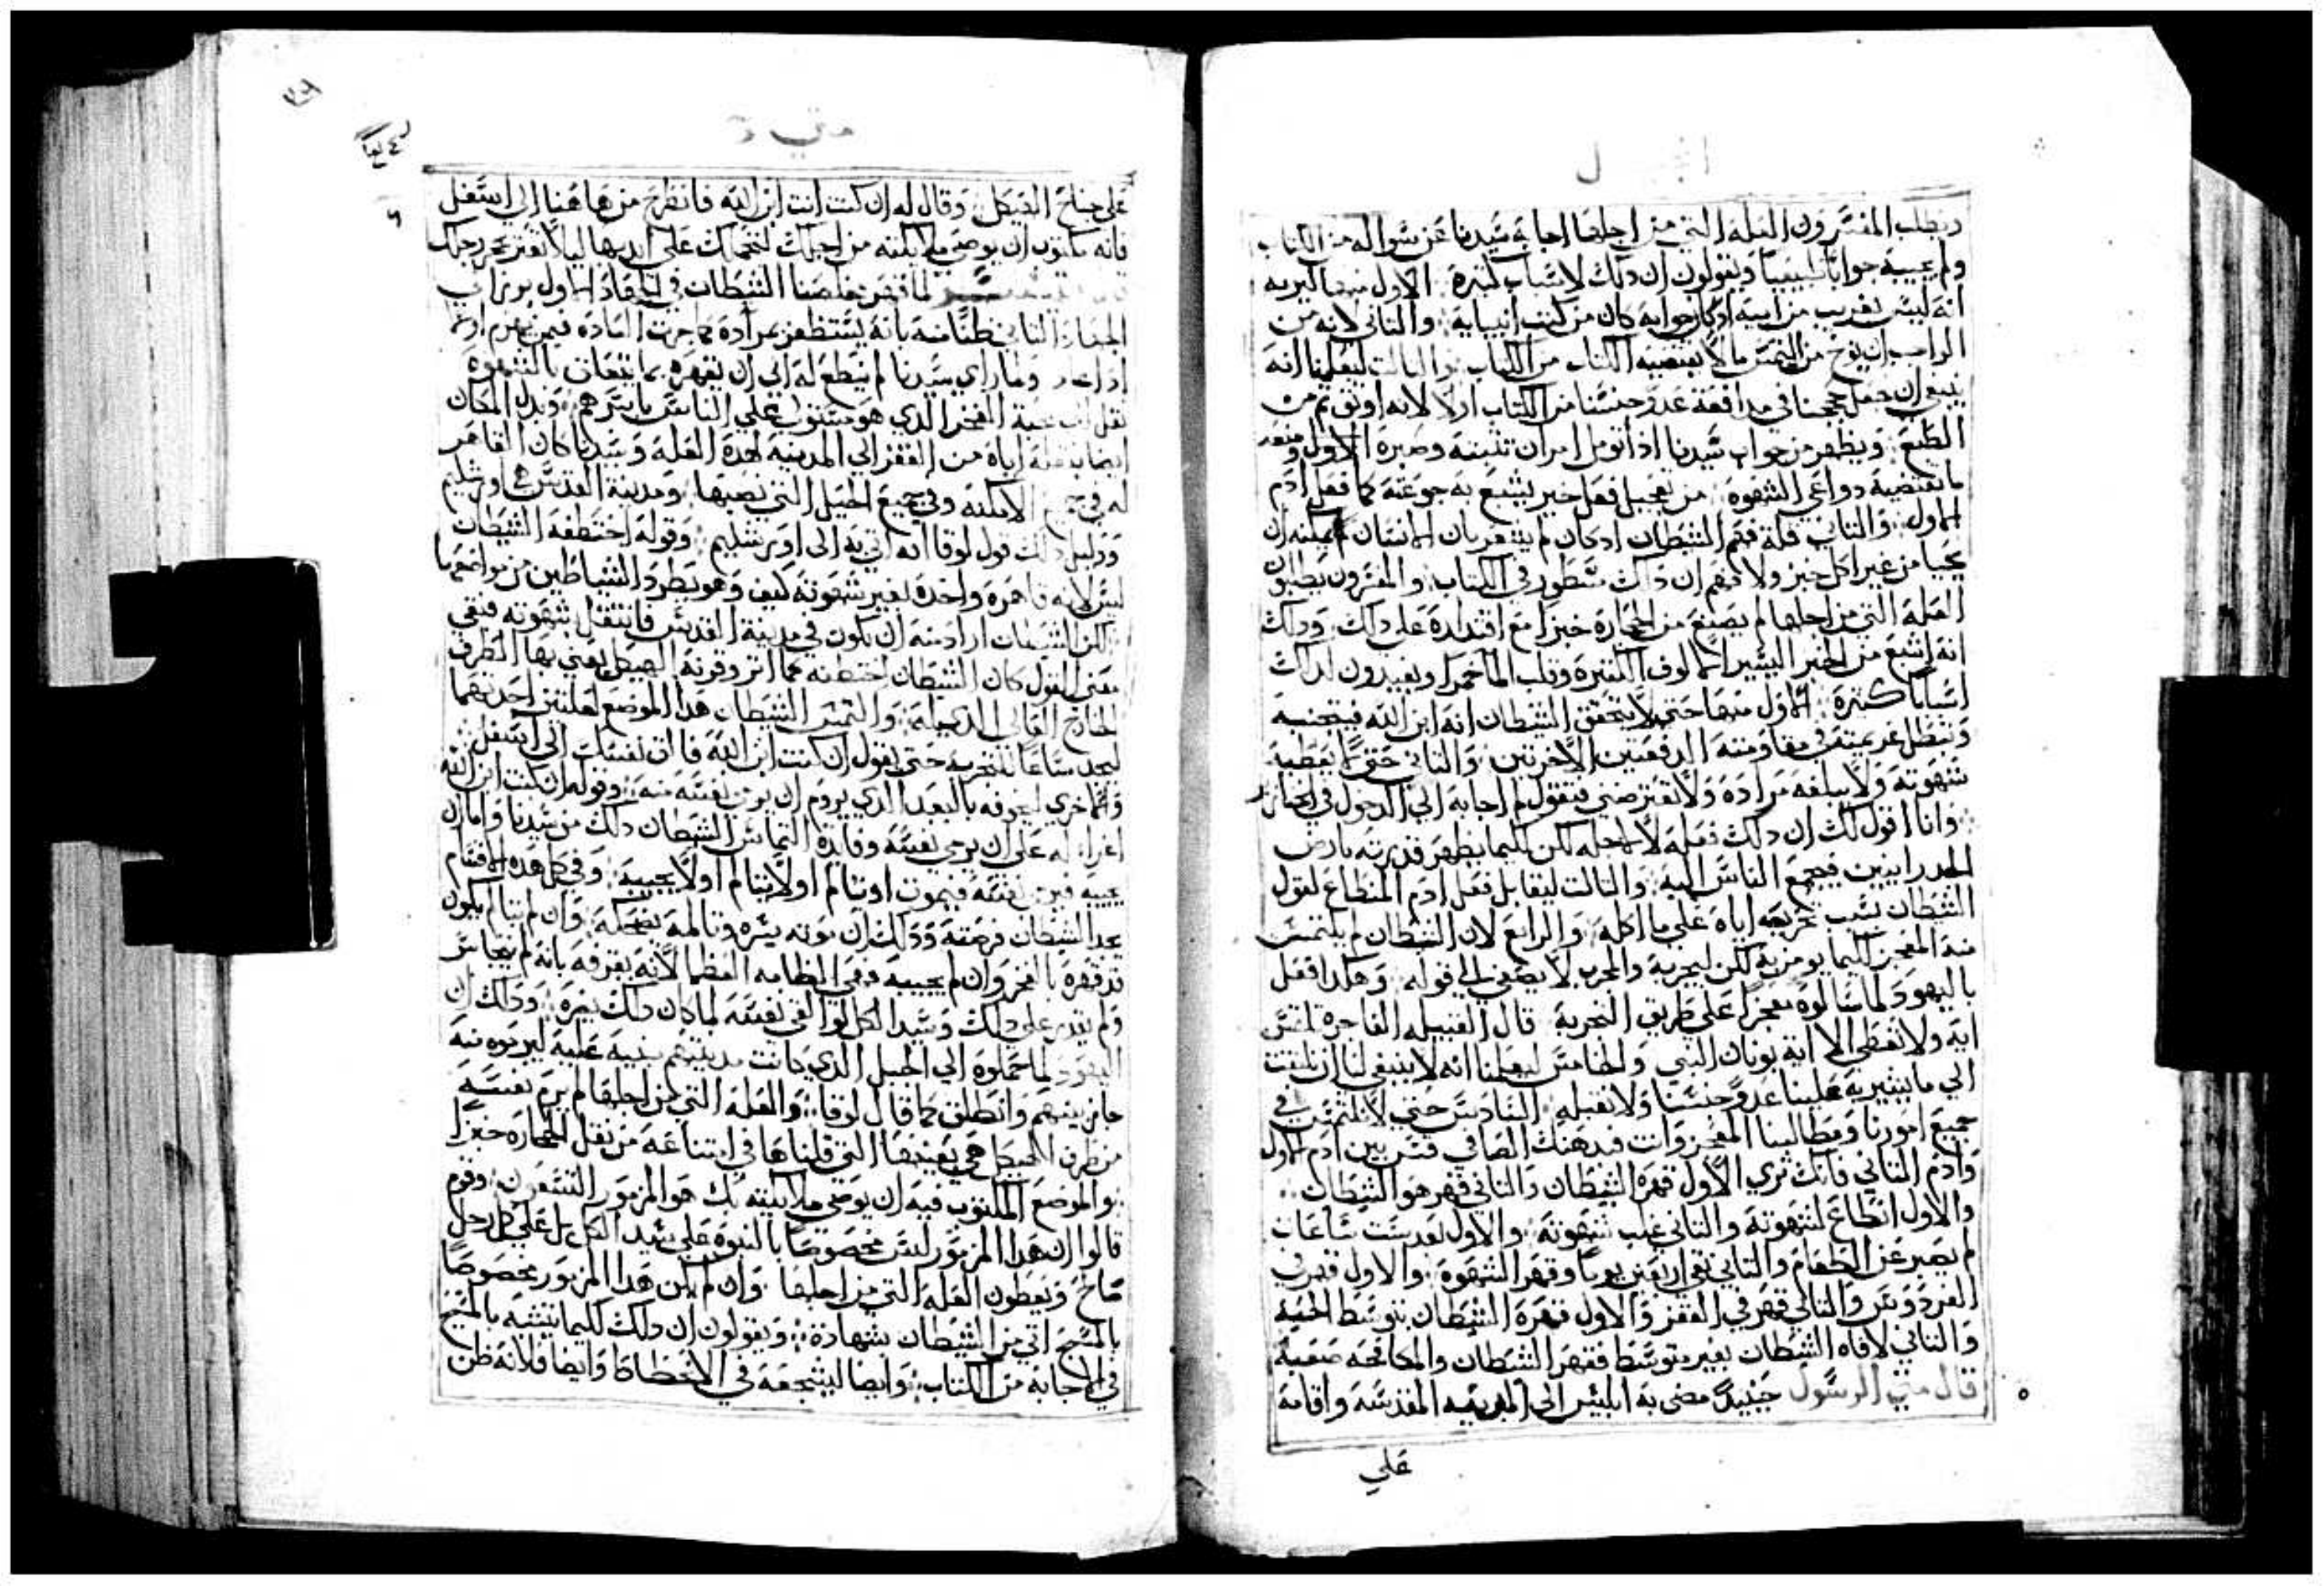 ويطلب المفسرون العلة التي من اجلها اجابة سيدنا عن سواله من الكتاب
ولم يجيبه جوابا طبيعيا ويقولون ان دلك لاسباب كثيرة الاول منها ليريه
انه ليس بغريب من ابيه ادكان جوابه كان من كتب انبيايه والتاني لانه من
الواجب ان يوخ من التمس ما لا يقتضيه الكتاب من الكتاب والتالت ليعلمنا انه
ينبغي ان نجعل حججنا في مدافعة عدو جنسنا من الكتاب اولا لانه اوثق تم من
الطبع ويظهر من جواب سيدنا ادا تومل امران تثبته وصبره الاول
ما تقتضيه دواعي الشهوة من تعجيل فعل خبز يشبع به جوعته كما فعل ادم
الاول والتاني قلة فهم الشيطان ادكان لم يشعر بان الانسان يمكنه ان
يحيا من غير اكل خبز ولا فهم ان داك مسطور في الكتاب والمفسرون يطلبون
العلة التي من اجلها لم يصنع من الحجارة خبزا مع اقتداره على دلك ودلك
انه اشبع من الخبز اليسير الالوف الكتيرة وقلب الما خمرا ويفيدون لداك
اسبابا كتيرة الاول منها حتي لا يتحقق الشيطان انه ابن الله فيتجنبه
وتبطل عزيمته في مقاومته الدفعتين الاخرتين والتاني حتى لا يعطيه
شهوته ولا يبلغه مراده ولا تعترضني فتقول لم اجابه الي الدخول في الخنازير
وانا اقول لك ان دلك فعله لا لاجله لكن لكيما يظهر قدرته بارض
الجدرانيين فيجمع الناس اليه والتالت ليقابل فعل ادم المنطاع لقول
الشيطان بسبب تحريصه اياه على ما اكله والرابع لان الشيطان لم يلتمس
منه المعجز لكيما يومن به لكن ليجربه والمجرب لا يصغي الي قوله وهكدا فعل
باليهود لما سالوه معجزا على طريق التجربة قال القبيله الفاجرة تلتمس
اية ولا تعطي الا اية يونان النبي والخامس ليعلمنا انه لا ينبغي لنا ان نلتفت
الي ما يشير به علينا عدو جنسنا ولا نقبله السادس حتي لا نلتمس في
جميع امورنا ومطالبنا المعجزوات فبدهنك الصافي قس بين ادم الاول
وادم التاني فانك تري الاول قهره الشيطان والتاني قهر هو الشيطان
والاول انطاع لشهوته والتاني غلب شهوته والاول بعد ست ساعات
لم يصبر عن الطعام والتاني بقي اربعين يوما وقهر الشهوة والاول قهر في
الفردوس والتاني قهر في القفز والاول قهره الشيطان بتوسط الحية
والتاني لاقاه الشيطان بغير توسط فقهر الشيطان والمكافحه صعبة
قال متي الرسول حينيدٍ مضى به ابليس الى المدينه المقدسة واقامة
علي
متي
على جناح الهيكل وقال له ان كنت انت ابن الله فانطرح من هاهنا الي اسفل
فانه مكتوب ان يوصي ملايكته من اجلك لتحملك على ايديها ليلا تعتر بحجر رجلك
لما قهر مخلصنا الشيطان في الجهاد الاول
الجهاد التاني ظنا منه بانه يستظهر بمراده كما جرت العادة فيمن
وما راي سيدنا لم ينطع له الي ان يقهره بما يتعلق بالشهوة
محبة الفخر الدي هو مستول على الناس باسرهم وبدل المكان
ايضا بنقلة اياه من القفز الي المدينه لهده العلة وسيدنا كان القاهر
له في جميع الامكنه وفي جميع الحيل التي نصبها ومدينة القدس هي اورشليم
ودليل دلك قول لوقا انه اتي به الى اورشليم وقوله اختطفه الشيطان
ليس لانه قاهره واخده بغير شهوته كيف وهو يطرد الشياطين من مواضعها
لكن الشيطان اراد منه ان يكون في مدينة القدس فانتقل بشهوته فبقي
معني القول كان الشيطان اختطفه عما اتر وقرنة الهيكل يعني بها الطرف
الخارج العالي الدي عليه والتمس الشيطان هدا الموضع لعلتين احدتهما
ليجد مساغا للتجربه حتي يقول ان كنت ابن الله فالق نفسك الي اسفل
والاخري ليخوفه بالبعد الدي يروم ان يرمي نفسه منه وقوله ان كنت ابن الله
اغراء له على ان يرمي نفسه وفايدة التماس الشيطان دلك من سيدنا واما ان
يجيبه فيرمي نفسه فيموت او يتالم او لا يتالم او لا يجيبه وفي كل هده الاقسام
يجد الشيطان فرصته ودلك ان موته يسره وتالمه يضحكه وان لم يتالم يكون
قد قهره بالفخر وان لم يجيبه فهي الطامه العظما لانه يقرفه بانه لم يتجاسر
ولم يقدر على دلك وسيد الكل لو القي نفسه لما كان دلك يضره ودلك ان
اليهود لما حملوه الي الجبل الدي كانت مدينتهم مبنية عليه ليرموه منه
جاز بينهم وانطلق كما قال لوقا والعلة التي من اجلها لم يرم نفسه
من طرف الهيكل هي بعينها التي قلناها في امتناعه من نقل الحجاره خبزا
والموضع المكتوب فيه ان يوصي ملايكته بك هو المزمور التسعون وقوم
قالوا ان هدا المزمور ليس مخصوصا بالنبوة على سيد الكل بل على كل رجل
صالح ويعطون العلة التي من اجلها وان لم يكن هدا المزمور مخصوصا
بالمسيح اتي من الشيطان بشهادة ويقولون ان دلك لكيما يتشبه بالمسيح
في الاجابة من الكتاب وايضا ليشجعه في الانحطاط وايضا فلانه ظن